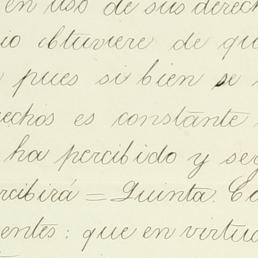 en uso de sus derech
io obtuviere de qu
pues si bien se
echos es constante
ha percibido y se
rcibirá = Quinta. Co
entes: que en virtu